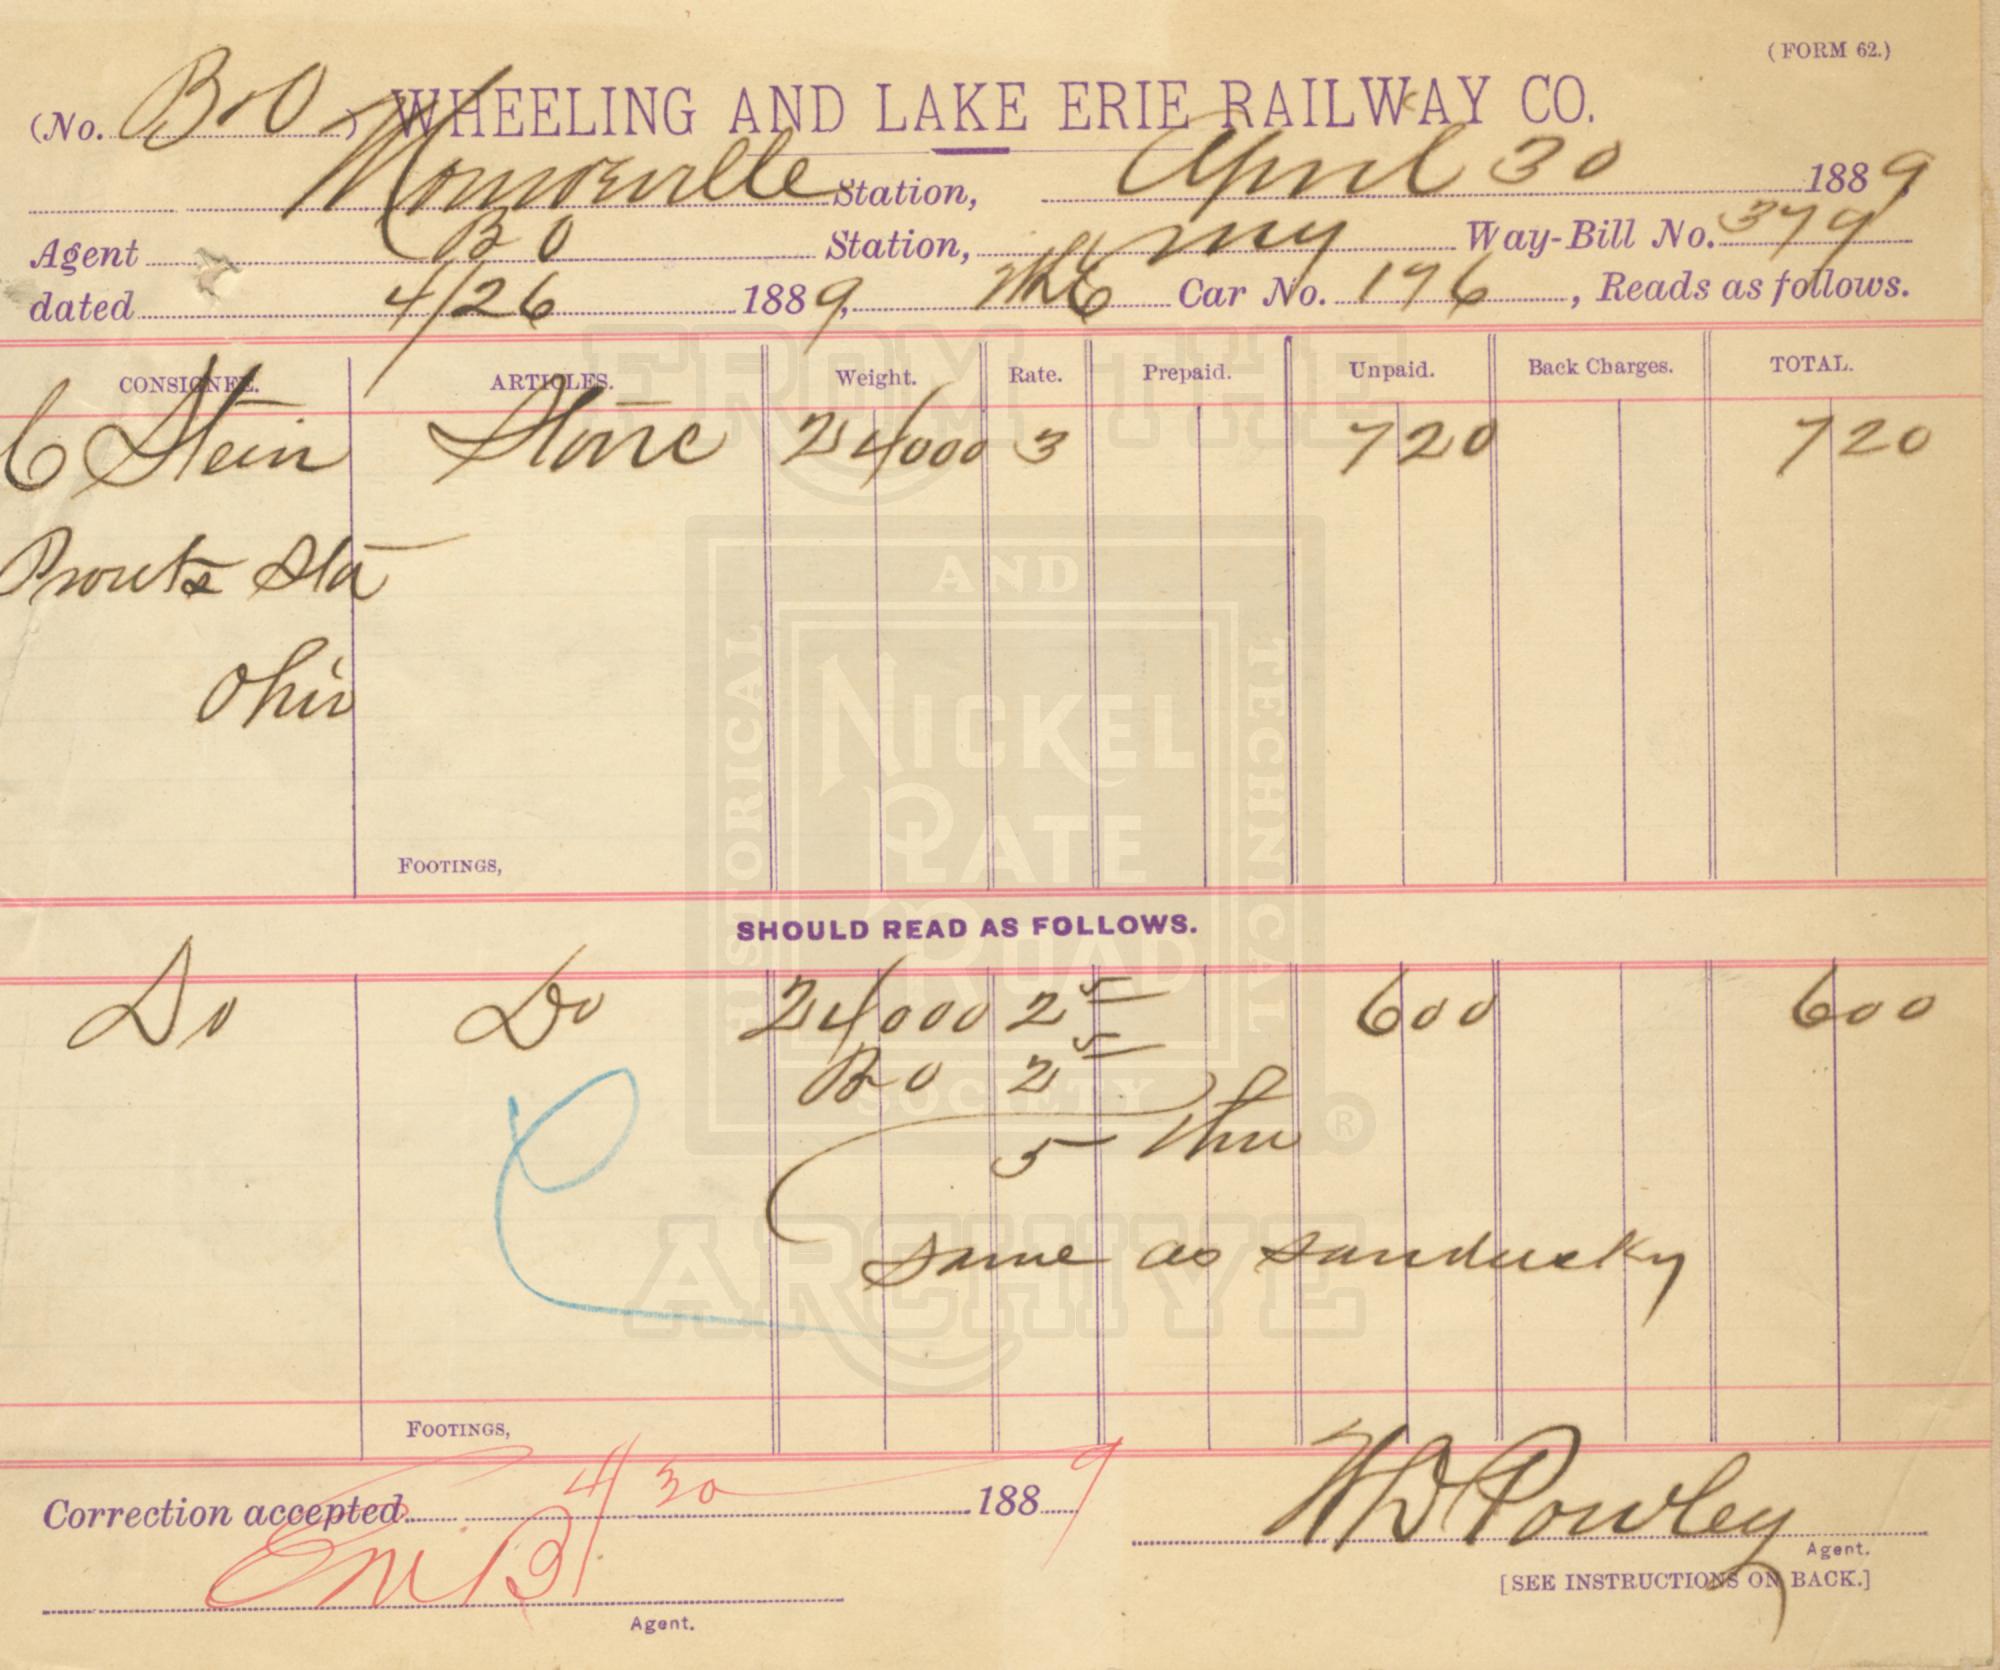 (FORM 62.)
(No. B&O ) WHEELING AND LAKE ERIE RAILWAY CO.
Monroeville Station, April 30 1889
Agent B O Station, my Way-Bill No. 379
dated 4/26 1889, Car No. 176, Reads as follows.
CONSIGNEE. ARTICLES. Weight. Rate. Prepaid. Unpaid. Back Charges. TOTAL.
C Stein Stone 24000 3 720 720
Prouts Sta
Ohio
FOOTINGS,
SHOULD READ AS FOLLOWS.
Do Do 24000 2 5 600 600
B O 2 5
5 Thru
same as sandusky
FOOTINGS,
Correction accepted 4/30 1889
W D Powley
Agent.
[SEE INSTRUCTIONS ON BACK.]
Agent.
FROM THE
HISTORICAL AND TECHNICAL
NICKEL
PLATE
ROAD
SOCIETY ®
ARCHIVE